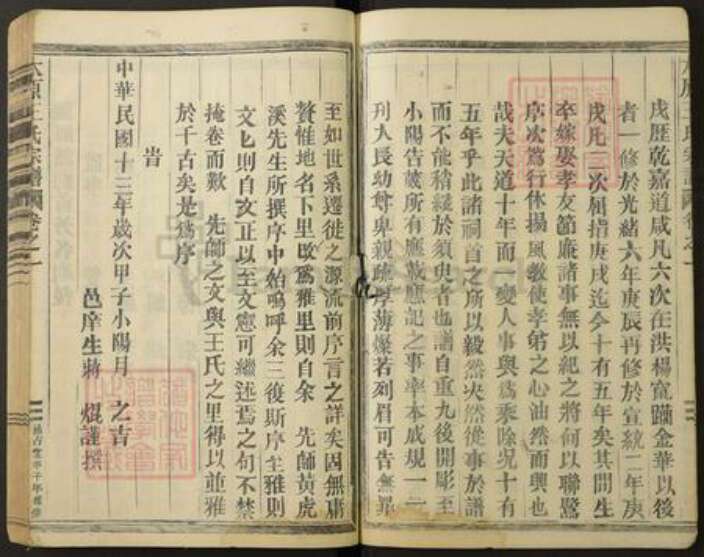 戌歷乾嘉道咸凡六次在洪楊寇躪金華以後
者一修於光緒六年庚辰再修於宣統二年庚
戌凡二次屈指庚戌迄今十有五年矣其間生
卒嫁娶孝友節廉諸事無以紀之將何以聯鷺
序次鴛行休揚風教使孝弟之心油然而興也
哉夫天道十年而一變人事與爲乘除况十有
五年乎此諸祠首之所以毅然决然從事於譜
而不能稍緩於須臾者也譜自重九後開彫至
小陽告蕆所有應載應記之事率本成規一一
刋人長幼尊卑親疏厚薄燦若列眉可告無罪
至如世系遷徙之源流前序言之詳矣固無庸
贅惟地名下里改爲雅里則自余 先師黃虎
溪先生所撰序中始嗚呼余三復斯序至雅則
文乜則自文正以至文憲可繼述焉之句不禁
掩卷而歎 先師之文與王氏之里得以並雅
於千古矣是爲序
旹
中華民國十三年歲次甲子小陽月 之吉
邑庠生蔣 焜謹撰
太原王氏宗譜 卷之一